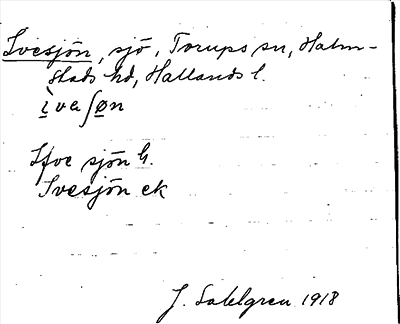 Ivesjön, sjö, Torups sn, Halm-
stads hd, Hallands l.
ìve ʃøn
Ifve sjön G.
Ivesjön ek
J. Sahlgren 1918